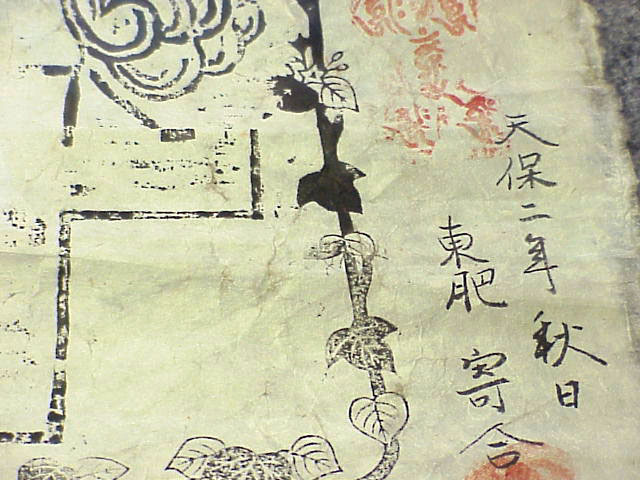 天保二年 秋日
東肥 寄合